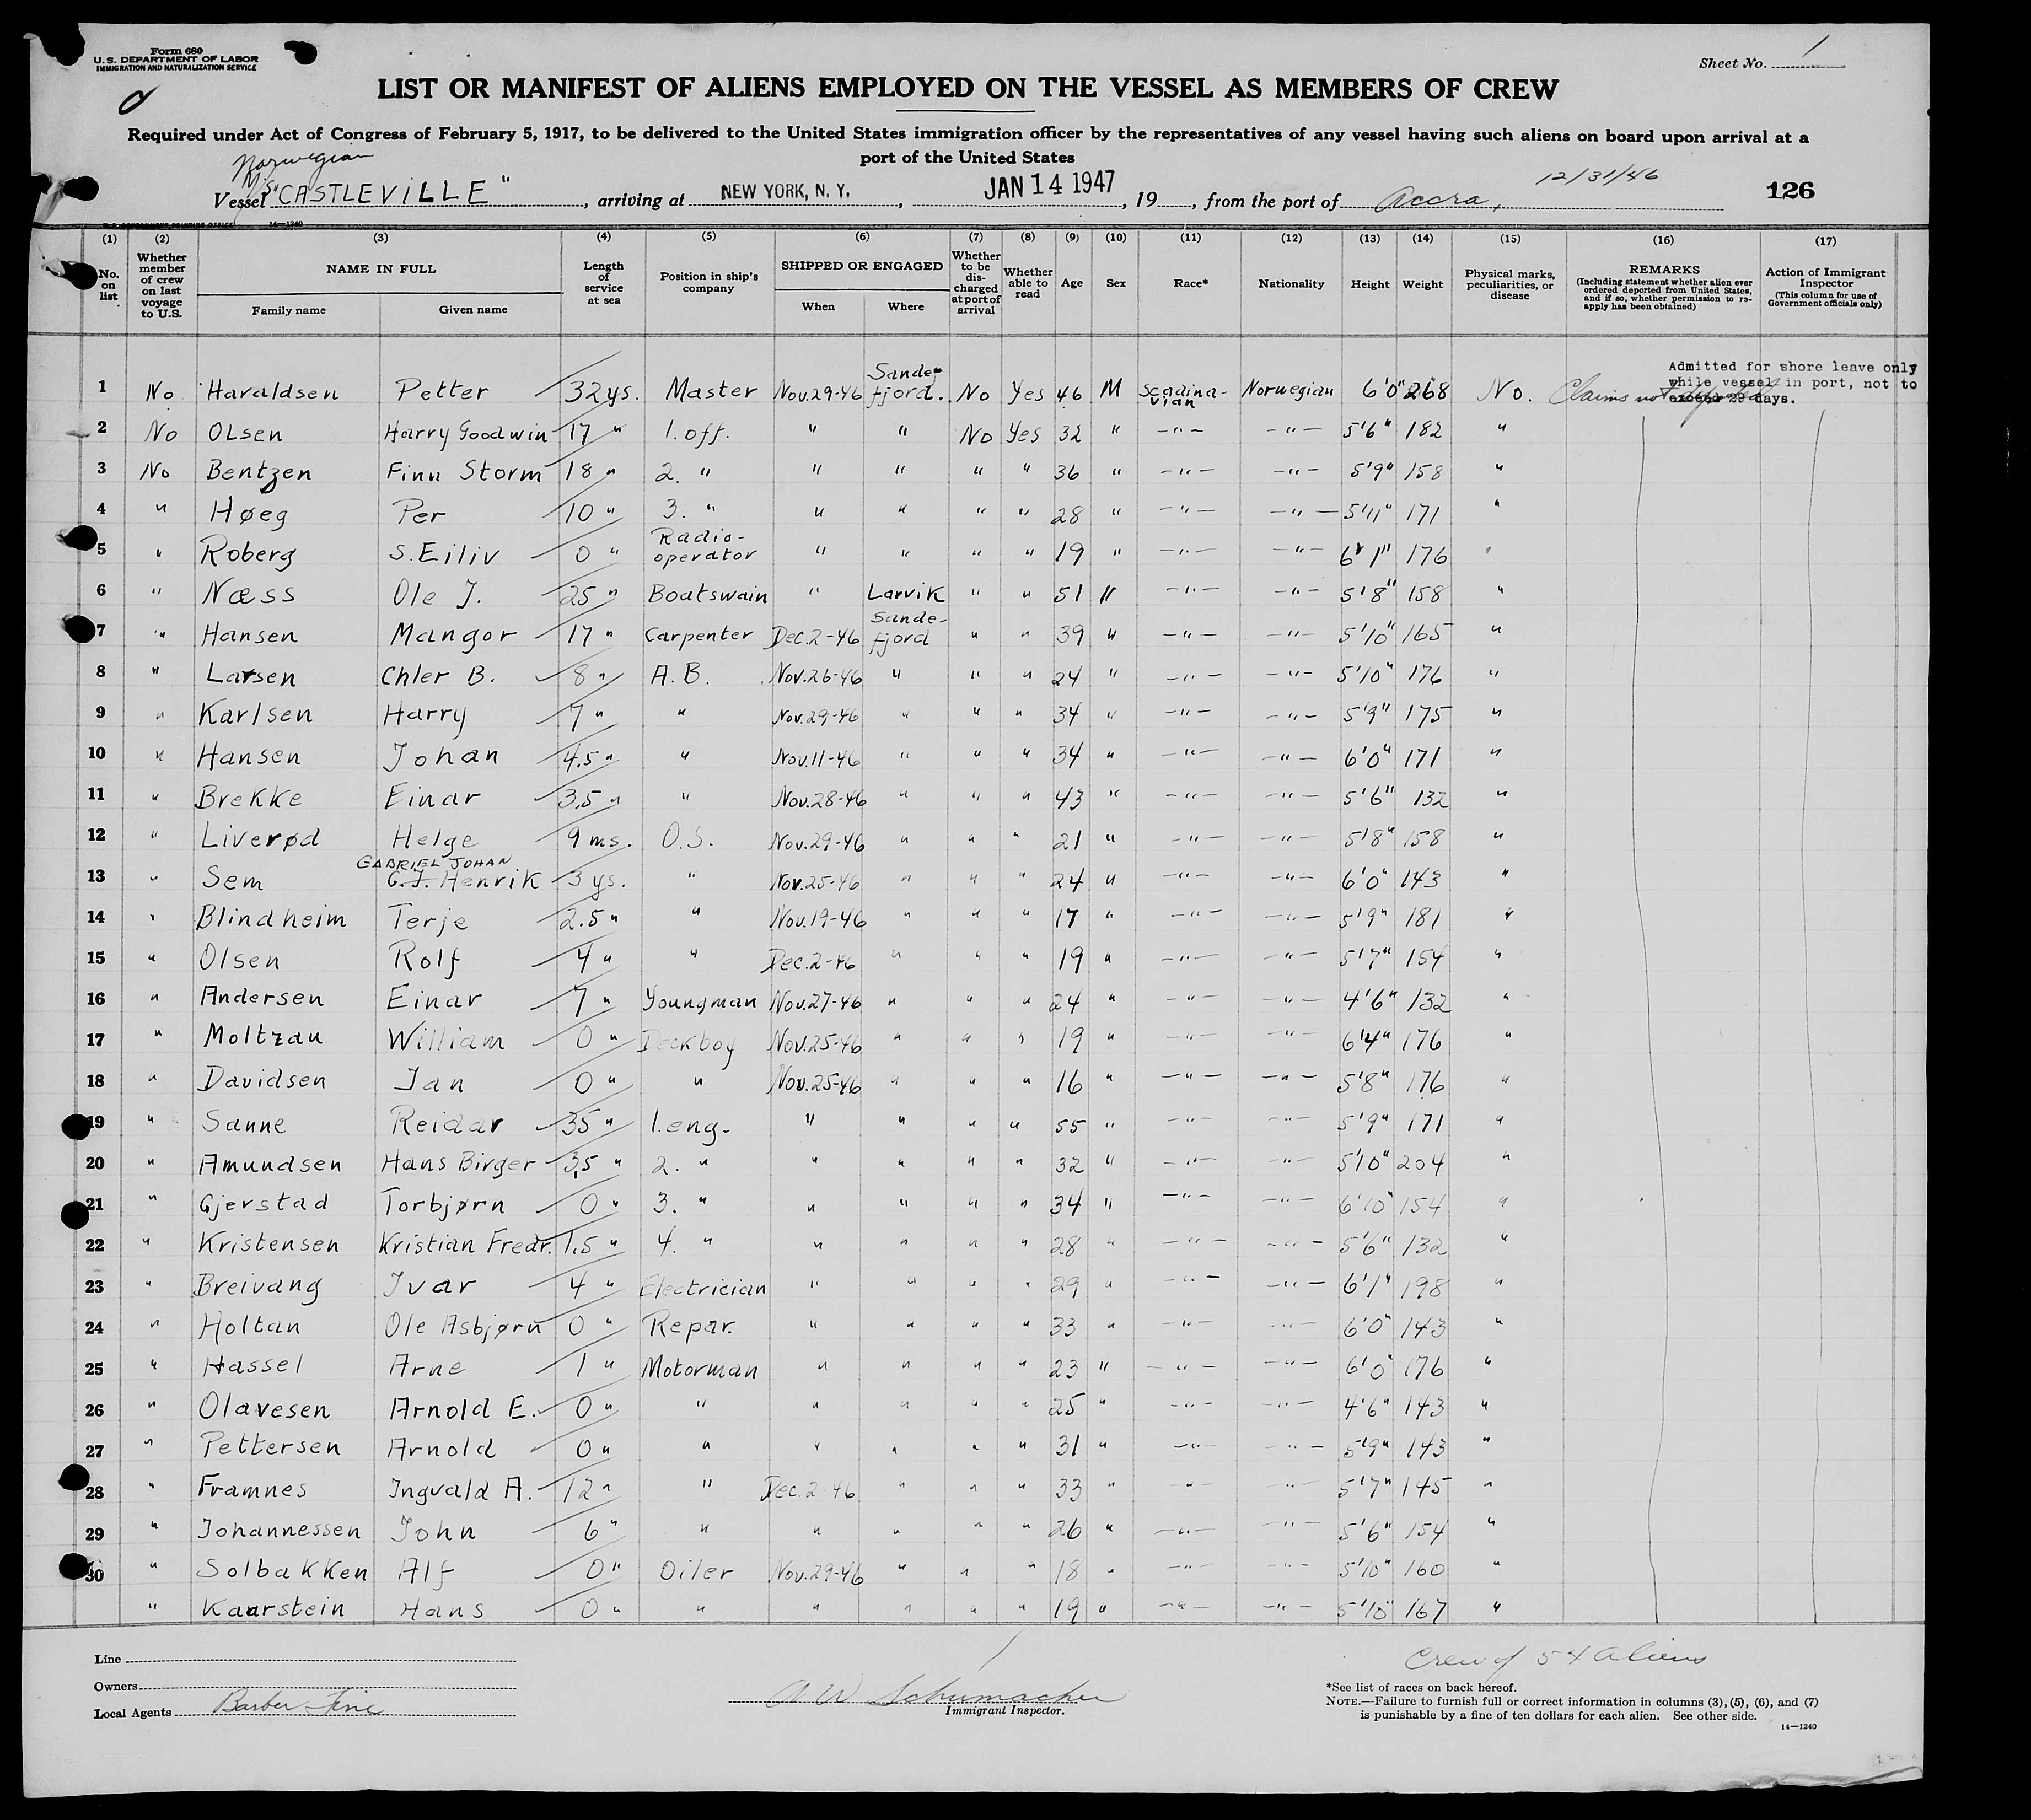 Form 680
U. S. DEPARTMENT OF LABOR
IMMIGRATION AND NATURALIZATION SERVICE
Sheet No. 1
LIST OR MANIFEST OF ALIENS EMPLOYED ON THE VESSEL AS MEMBERS OF CREW
Required under Act of Congress of February 5, 1917, to be delivered to the United States immigration officer by the representatives of any vessel having such aliens on board upon arrival at a
port of the United States
Norwegian
Vessel M/S "CASTLEVILLE", arriving at NEW YORK, N. Y., JAN 14 1947, 19, from the port of Accra, 12/31/46 126
14—1240
(1) (2) (3) (4) (5) (6) (7) (8) (9) (10) (11) (12) (13) (14) (15) (16) (17)
No. on list Whether member of crew on last voyage to U.S. NAME IN FULL Family name Given name Length of service at sea Position in ship's company SHIPPED OR ENGAGED When Where Whether to be discharged at port of arrival Whether able to read Age Sex Race* Nationality Height Weight Physical marks, peculiarities, or disease REMARKS (Including statement whether alien ever ordered deported from United States, and if so, whether permission to reapply has been obtained) Action of Immigrant Inspector (This column for use of Government officials only)
Admitted for shore leave only
while vessel in port, not to
exceed 29 days.
1 No Haraldsen Petter 32 ys. Master Nov. 29-46 Sandefjord. No Yes 46 M Scadinavian Norwegian 6'0" 268 No. Claims not
2 No OLsen Harry Goodwin 17 " 1. off. " " No Yes 32 " -"- -"- 5'6" 182 "
3 No Bentzen Finn Storm 18 " 2. " " " " " 36 " -"- -"- 5'9" 158 "
4 " Høeg Per 10 " 3. " " " " " 28 " -"- -"- 5'11" 171 "
5 " Roberg S. Eiliv 0 " Radio-operator " " " " 19 " -"- -"- 6'1" 176 "
6 " Næss Ole J. 25 " Boatswain " Larvik " " 51 " -"- -"- 5'8" 158 "
7 " Hansen Mangor 17 " Carpenter Dec. 2-46 Sandefjord " " 39 " -"- -"- 5'10" 165 "
8 " Larsen Chler B. 8 " A. B. Nov. 26-46 " " " 24 " -"- -"- 5'10" 176 "
9 " Karlsen Harry 7 " " Nov. 29-46 " " " 34 " -"- -"- 5'9" 175 "
10 " Hansen Johan 4.5 " " Nov. 11-46 " " " 34 " -"- -"- 6'0" 171 "
11 " Brekke Einar 3.5 " " Nov. 28-46 " " " 43 " -"- -"- 5'6" 132 "
12 " Liverød Helge 9 ms. O. S. Nov. 29-46 " " " 21 " -"- -"- 5'8" 158 "
GABRIEL JOHAN
13 " Sem G. J. Henrik 3 ys. " Nov. 25-46 " " " 24 " -"- -"- 6'0" 143 "
14 " Blindheim Terje 2.5 " " Nov. 19-46 " " " 17 " -"- -"- 5'9" 181 "
15 " Olsen Rolf 4 " " Dec. 2-46 " " " 19 " -"- -"- 5'7" 154 "
16 " Andersen Einar 7 " Youngman Nov. 27-46 " " " 24 " -"- -"- 4'6" 132 "
17 " Moltzau William 0 " Deckboy Nov. 25-46 " " " 19 " -"- -"- 6'4" 176 "
18 " Davidsen Jan 0 " " Nov. 25-46 " " " 16 " -"- -"- 5'8" 176 "
19 " Sanne Reidar 35 " 1. eng. " " " " 55 " -"- -"- 5'9" 171 "
20 " Amundsen Hans Birger 3,5 " 2. " " " " " 32 " -"- -"- 5'10" 204 "
21 " Gjerstad Torbjørn 0 " 3. " " " " " 34 " -"- -"- 6'10" 154 "
22 " Kristensen Kristian Fredr. 1.5 " 4. " " " " " 28 " -"- -"- 5'6" 132 "
23 " Breivang Ivar 4 " Electrician " " " " 29 " -"- -"- 6'1" 198 "
24 " Holtan Ole Asbjørn 0 " Repar. " " " " 33 " -"- -"- 6'0" 143 "
25 " Hassel Arne 1 " Motorman " " " " 23 " -"- -"- 6'0" 176 "
26 " Olavesen Arnold E. 0 " " " " " " 25 " -"- -"- 4'6" 143 "
27 " Pettersen Arnold 0 " " " " " " 31 " -"- -"- 5'9" 143 "
28 " Framnes Ingvald A. 12 " " Dec. 2-46 " " " 33 " -"- -"- 5'7" 145 "
29 " Johannessen John 6 " " " " " " 26 " -"- -"- 5'6" 154 "
30 " Solbakken Alf 0 " Oiler Nov. 29-46 " " " 18 " -"- -"- 5'10" 160 "
" Kaarstein Hans 0 " " " " " " 19 " -"- -"- 5'10" 167 "
Line
Owners
Local Agents Barber Line
A W Schumacher
Immigrant Inspector.
Crew of 54 aliens
*See list of races on back hereof.
NOTE.—Failure to furnish full or correct information in columns (3), (5), (6), and (7)
is punishable by a fine of ten dollars for each alien. See other side.
14—1240